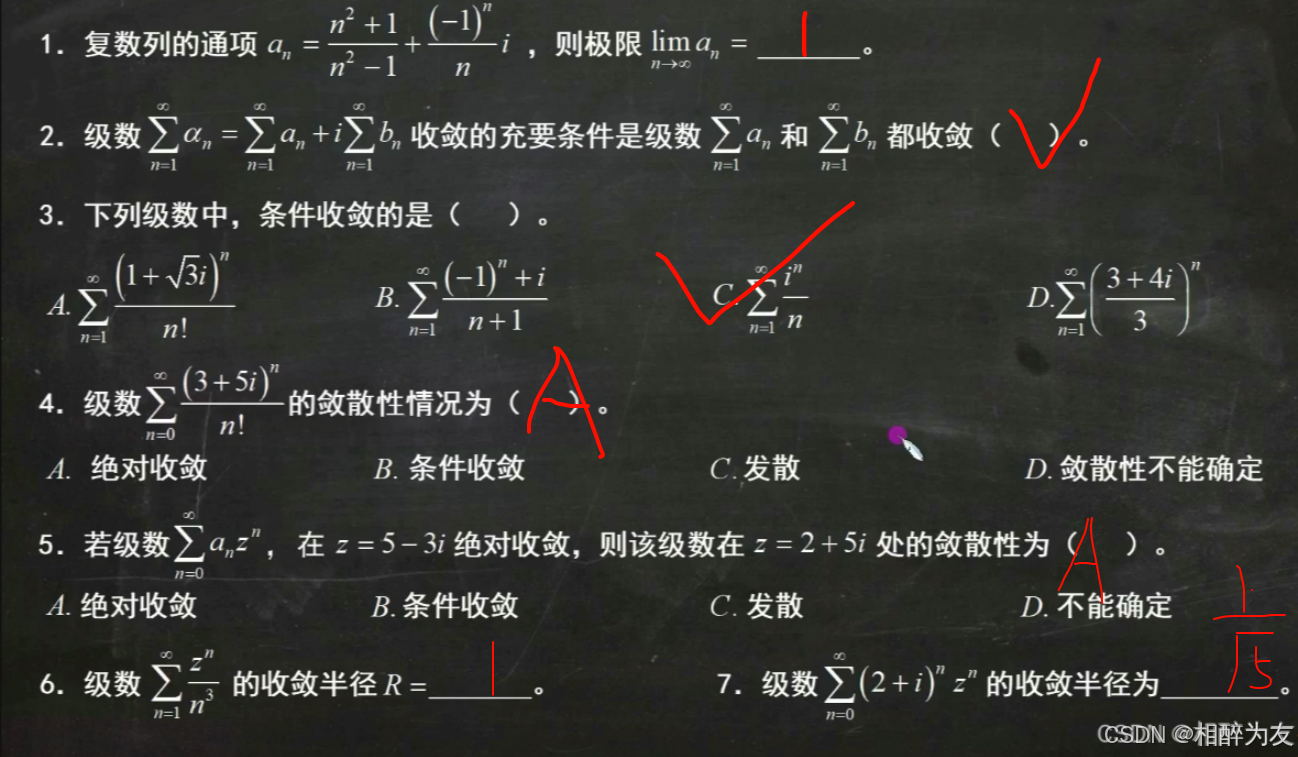 1. 复数列的通项 aₙ = (n² + 1)/(n² − 1) + ((−1)ⁿ/n) i ，则极限 lim_{n→∞} aₙ = ___1___。
2. 级数 ∑_{n=1}^{∞} αₙ = ∑_{n=1}^{∞} aₙ + i∑_{n=1}^{∞} bₙ 收敛的充要条件是级数 ∑_{n=1}^{∞} aₙ 和 ∑_{n=1}^{∞} bₙ 都收敛（ ✓ ）。
3. 下列级数中，条件收敛的是（ ）。
A. ∑_{n=1}^{∞} (1+√3i)ⁿ/n! B. ∑_{n=1}^{∞} ((−1)ⁿ + i)/(n+1) ✓ C. ∑_{n=1}^{∞} iⁿ/n D. ∑_{n=1}^{∞} ((3+4i)/3)ⁿ
4. 级数 ∑_{n=0}^{∞} (3+5i)ⁿ/n! 的敛散性情况为（ A ）。
A. 绝对收敛 B. 条件收敛 C. 发散 D. 敛散性不能确定
5. 若级数 ∑_{n=0}^{∞} aₙzⁿ，在 z = 5 − 3i 绝对收敛，则该级数在 z = 2 + 5i 处的敛散性为（ A ）。
A. 绝对收敛 B. 条件收敛 C. 发散 D. 不能确定
6. 级数 ∑_{n=1}^{∞} zⁿ/n³ 的收敛半径 R = ___1___。 7. 级数 ∑_{n=0}^{∞} (2+i)ⁿ zⁿ 的收敛半径为 ___1/√5___。
CSDN @相醉为友